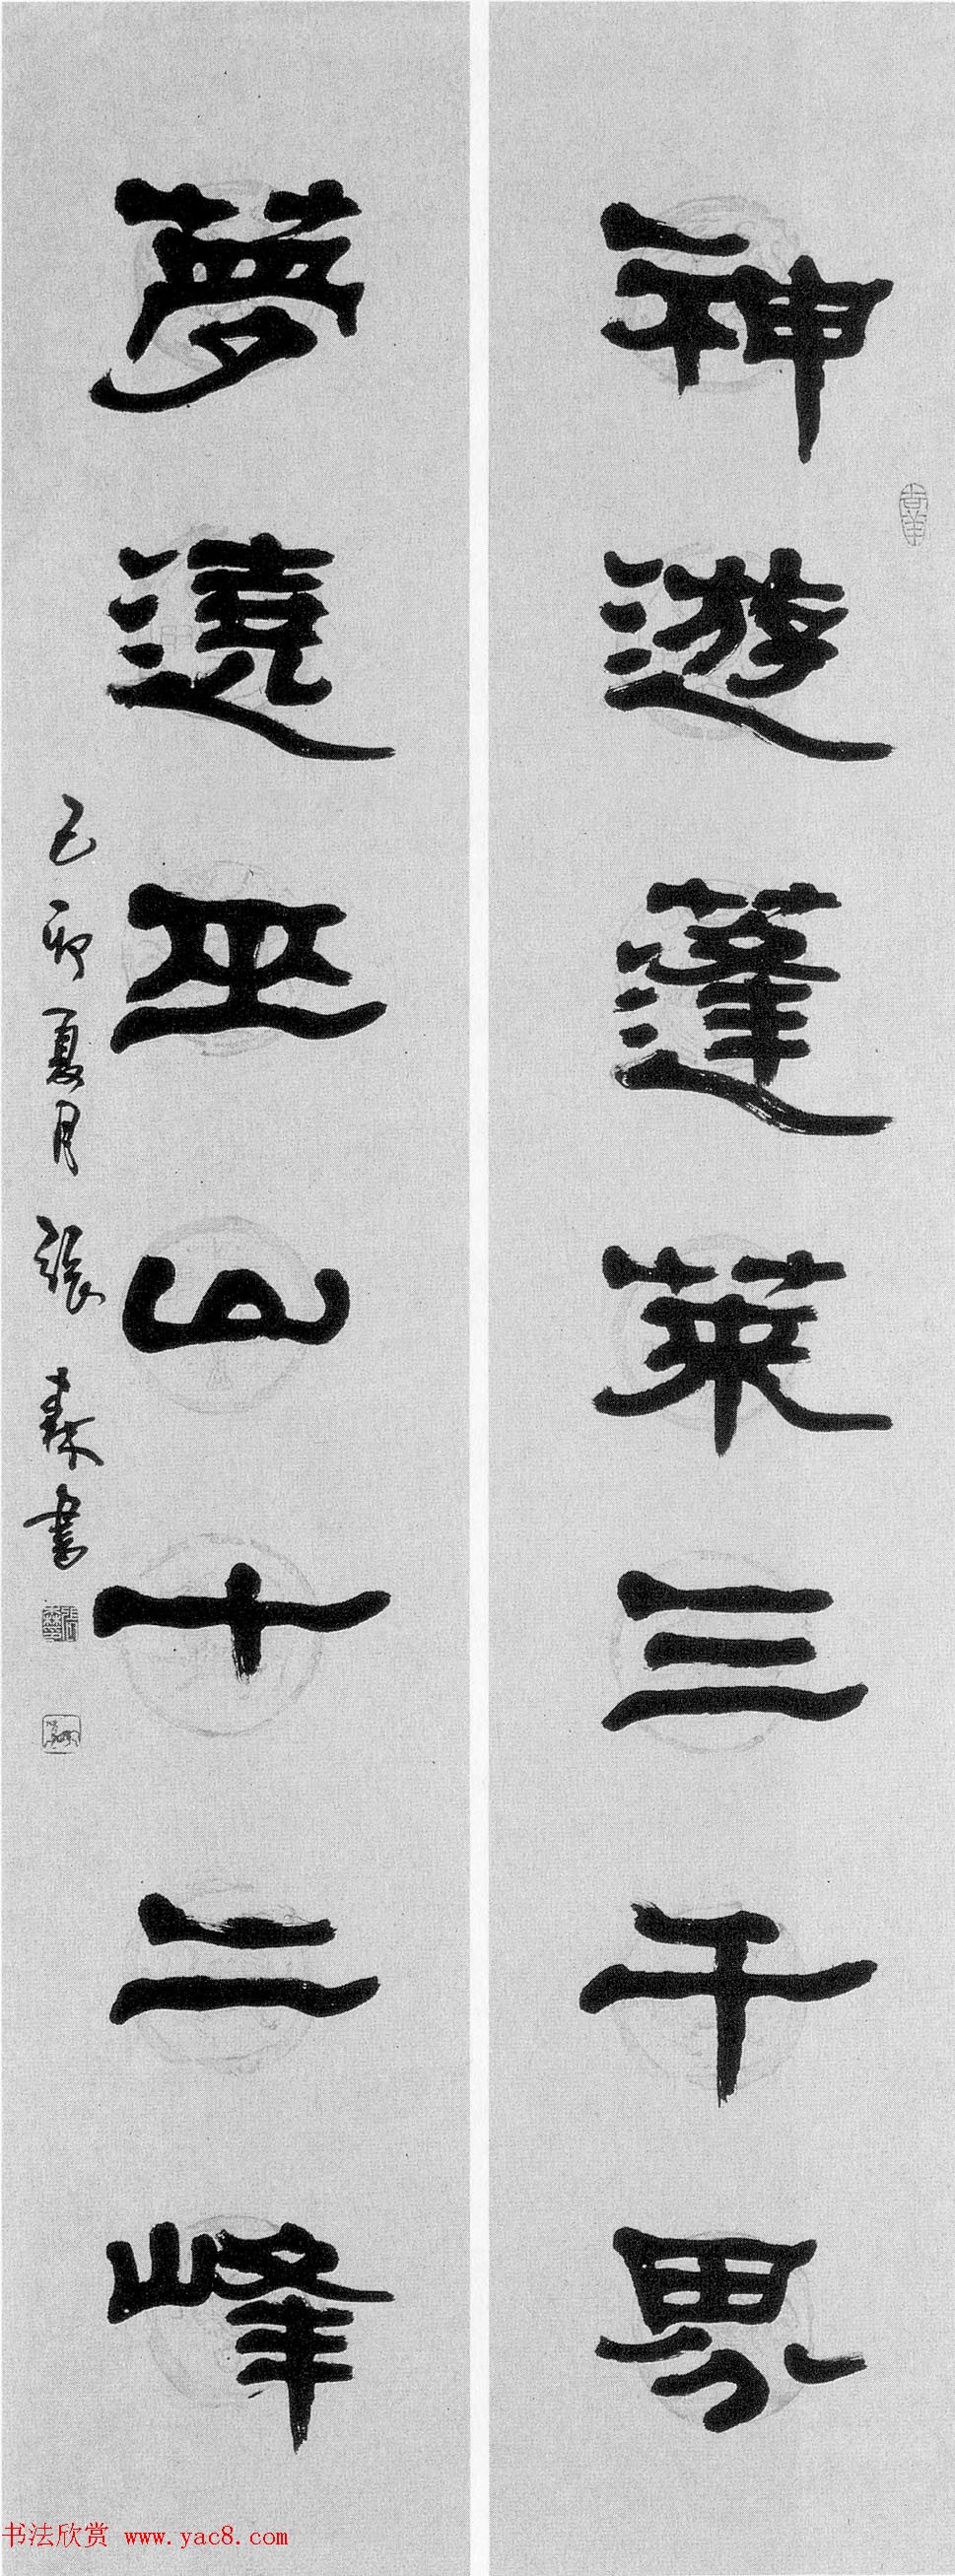 神遊蓬萊三千界
夢遶巫山十二峰
己卯夏月 張森書
书法欣赏 www.yac8.com